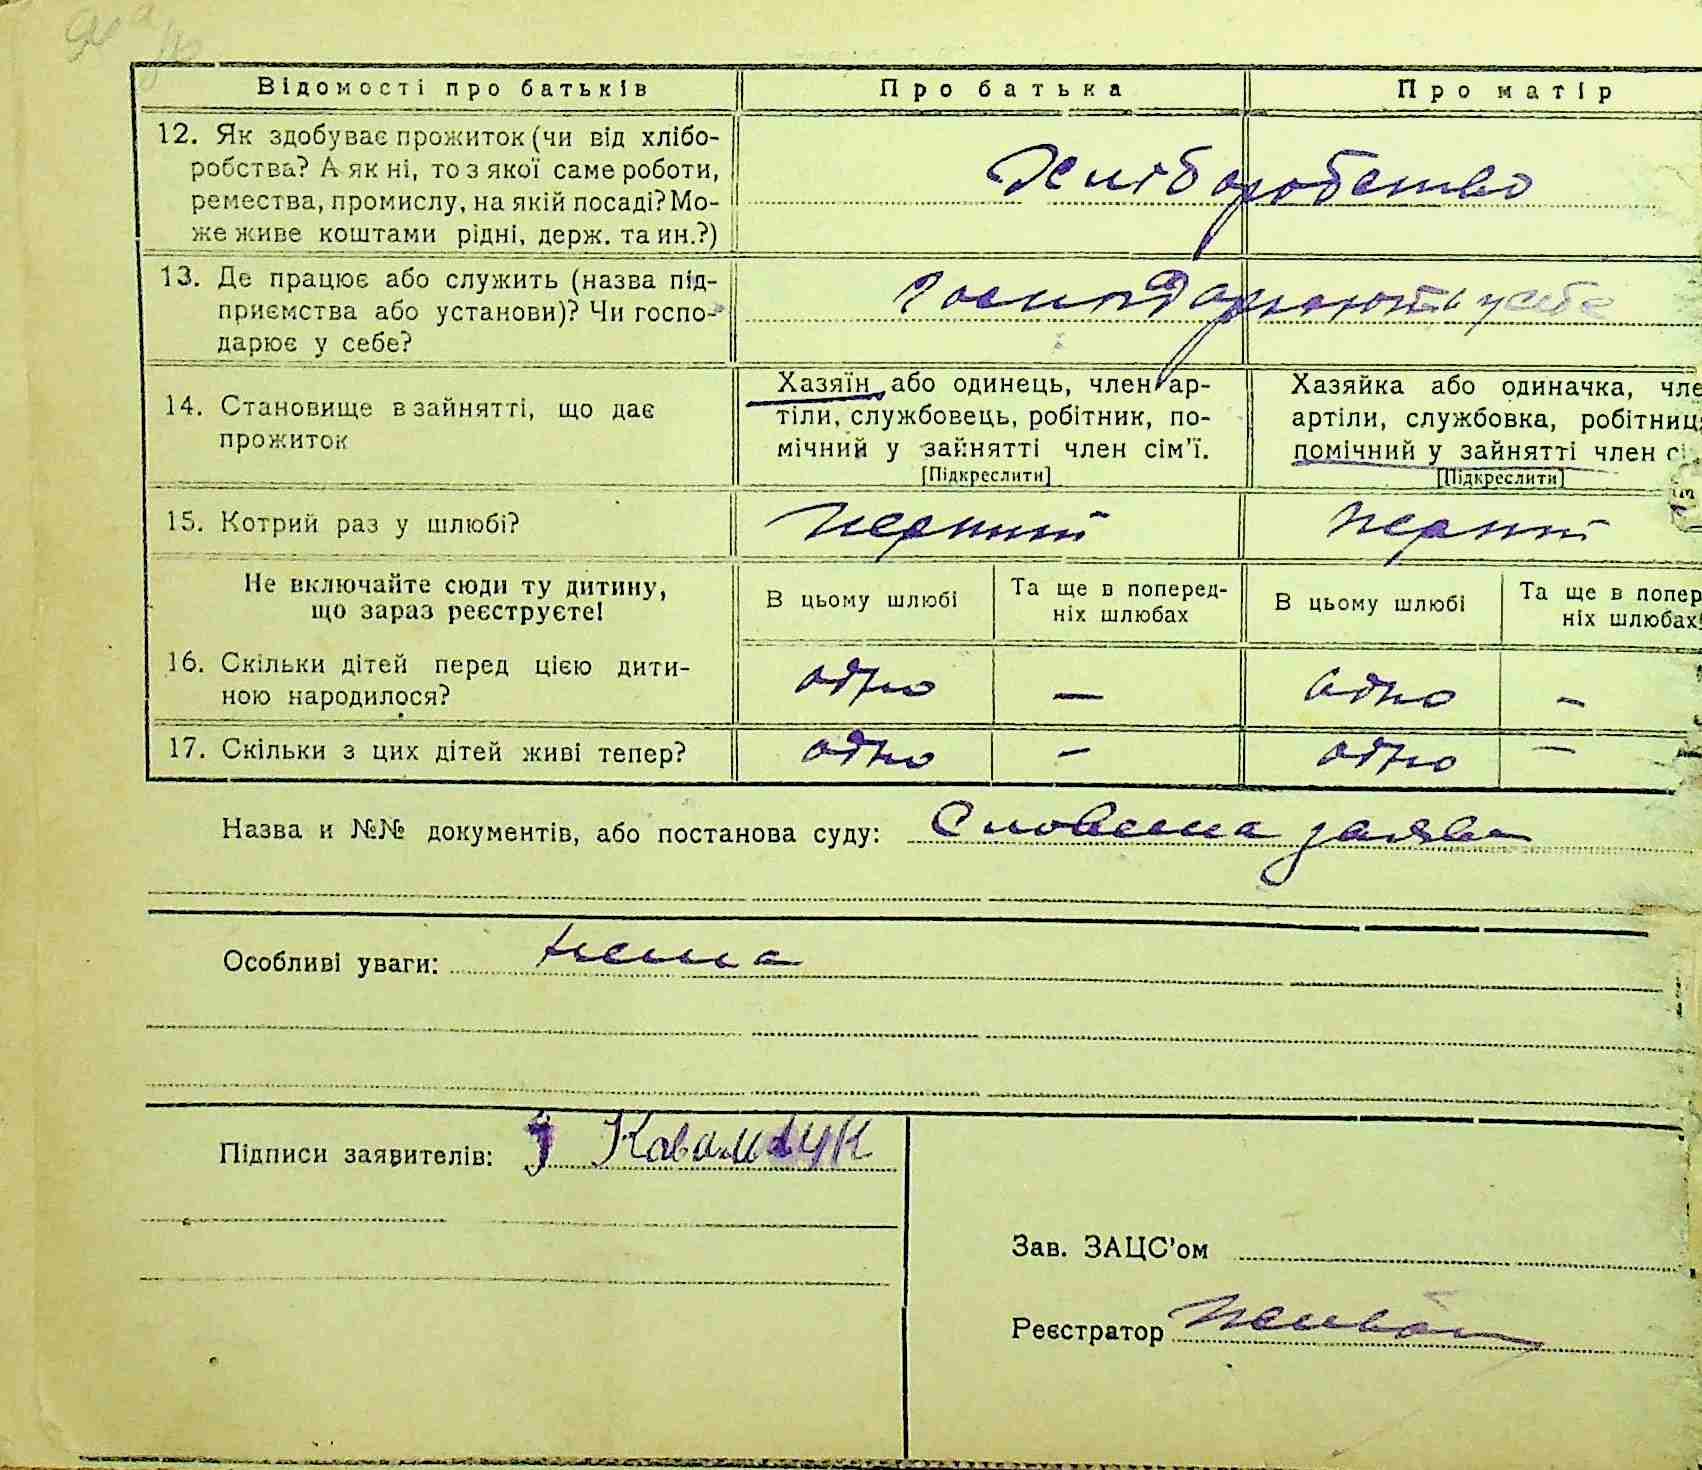 Відомості про батьків
Про батька
Про матір
12. Як здобуває прожиток (чи від хлібо-
робства? А як ні, то з якої саме роботи,
ремества, промислу, на якій посаді? Мо-
же живе коштами рідні, держ. та ин.?)
Хліборобство
13. Де працює або служить (назва під-
приємства або установи)? Чи госпо-
дарює у себе?
господарюють у себе
14. Становище в зайнятті, що дає
прожиток
Хазяїн, або одинець, член ар-
тіли, службовець, робітник, по-
мічний у зайнятті член сім'ї.
[Підкреслити]
Хазяйка або одиначка, чле
артіли, службовка, робітниц
помічний у зайнятті член сі
[Підкреслити]
15. Котрий раз у шлюбі?
перший
перший
Не включайте сюди ту дитину,
що зараз реєструєте!
В цьому шлюбі
Та ще в поперед-
ніх шлюбах
В цьому шлюбі
Та ще в попер
ніх шлюбах
16. Скільки дітей перед цією дити-
ною народилося?
одно
—
одно
—
17. Скільки з цих дітей живі тепер?
одно
—
одно
—
Назва и №№ документів, або постанова суду: Словесна заява
Особливі уваги: нема
Підписи заявителів: Ковальчук
Зав. ЗАЦС'ом
Реєстратор